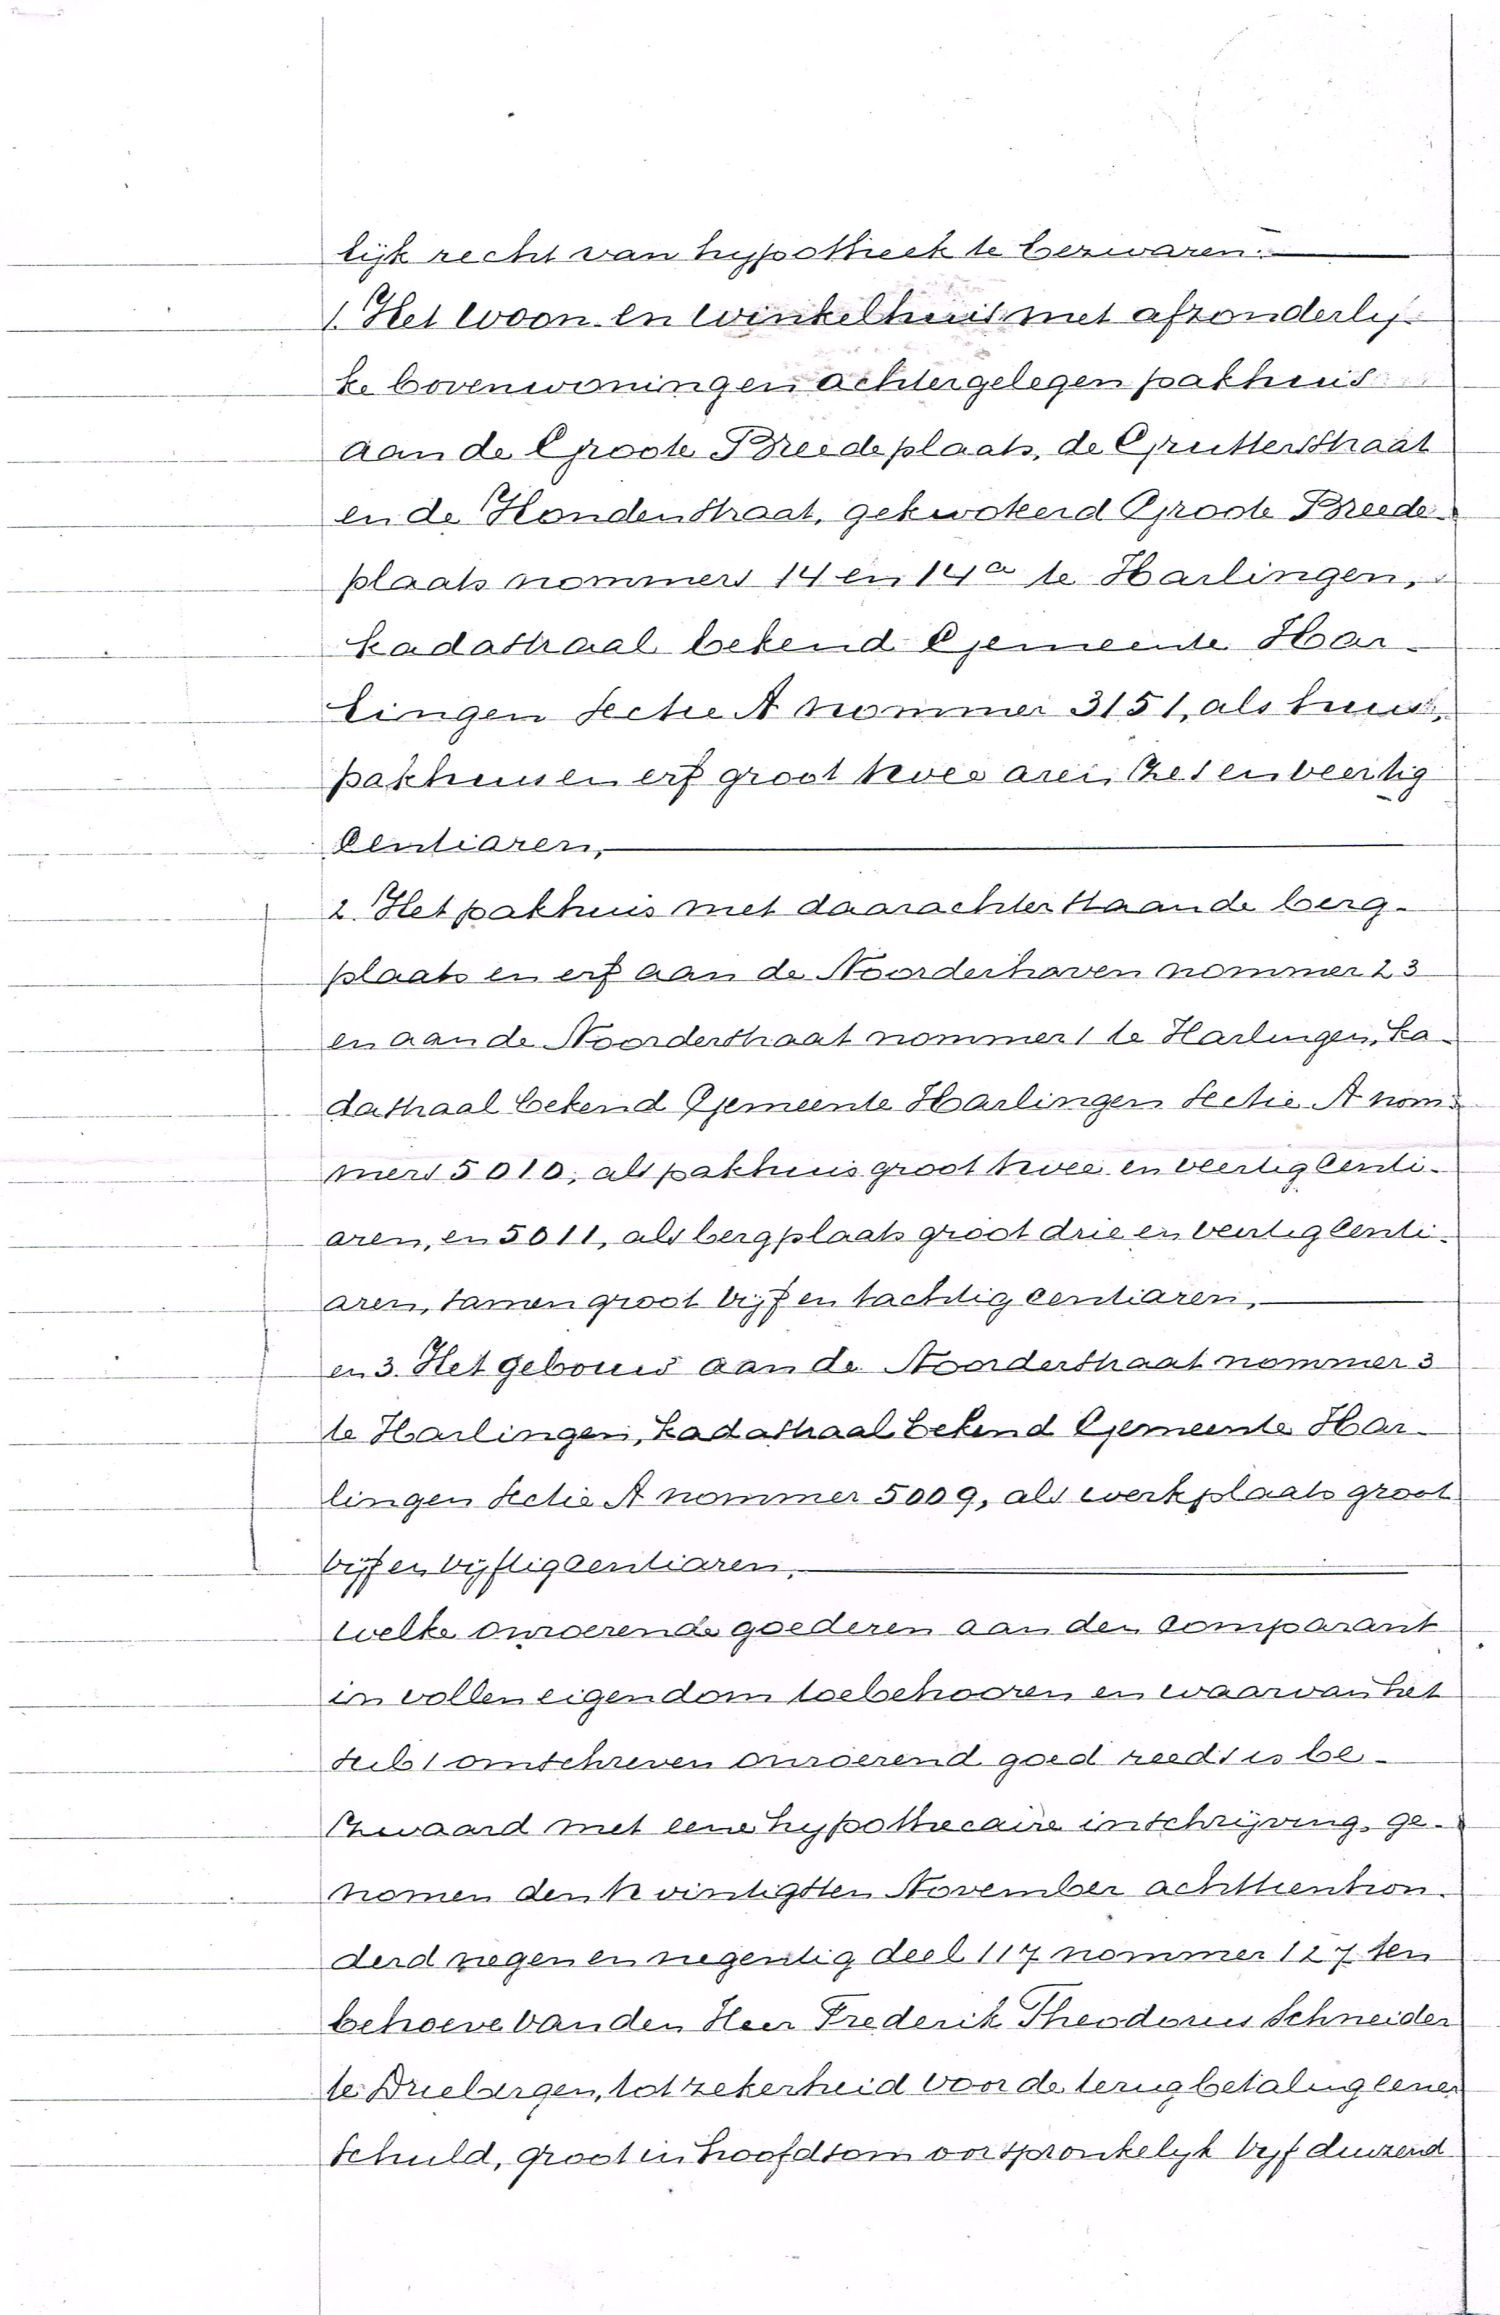 lijk recht van hypotheek te bezwaren:
1. Het woon en winkelhuis met afzonderlij-
ke bovenwoningen achtergelegen pakhuis
aan de Groote Breedeplaats, de Grutterstraat
en de Hondenstraat, gekwoteerd Groote Breede-
plaats nommers 14 en 14a te Harlingen,
kadastraal bekend Gemeente Har-
lingen Sectie A nommer 3151, als huis,
pakhuis en erf groot twee aren, zes en veertig
Centiaren,
2. Het pakhuis met daarachterstaande berg-
plaats en erf aan de Noorderhaven nommer 23
en aan de Noorderstraat nommer 1 te Harlingen, ka-
dastraal bekend Gemeente Harlingen Sectie A nom-
mers 5010, als pakhuis groot twee en veertig Centi-
aren, en 5011, als bergplaats groot drie en veertig Centi-
aren, samen groot vijf en tachtig centiaren,
en 3. Het gebouw aan de Noorderstraat nommer 3
te Harlingen, kadastraal bekend Gemeente Har-
lingen Sectie A nommer 5009, als werkplaats groot
vijf en vijftig centiaren,
welke onroerende goederen aan den comparant
in vollen eigendom toebehooren en waarvan het
sub 1 omschreven onroerend goed reeds is be-
zwaard met eene hypothecaire inschrijving, ge-
nomen den twintigsten November achttienhon-
derd negen en negentig deel 117 nommer 127 ten
behoeve van den Heer Frederik Theodorus Schneider
te Driebergen, tot zekerheid voor de terugbetaling eener
schuld, groot in hoofdsom oorspronkelyk vyf duizend